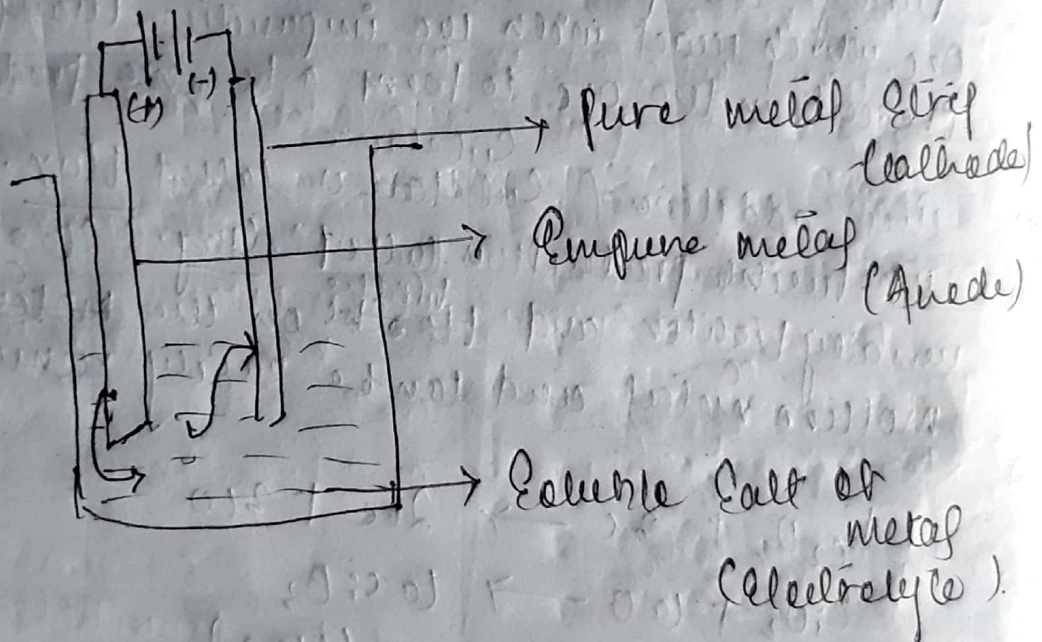 (+)
(-)
Pure metal Strip
(Cathode)
Impure metal
(Anode)
Soluble Salt of
metal
(Electrolyte).